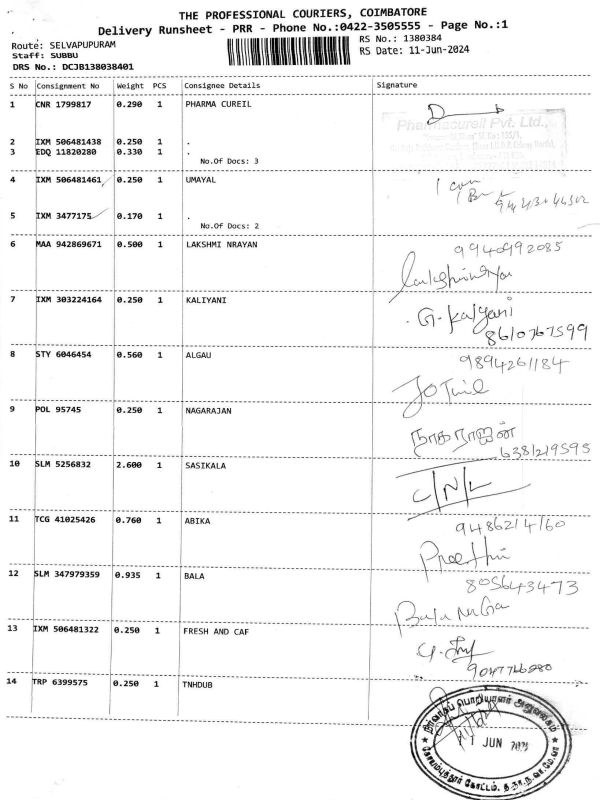 THE PROFESSIONAL COURIERS, COIMBATORE
Delivery Runsheet - PRR - Phone No.:0422-3505555 - Page No.:1
Route: SELVAPUPURAM
RS No.: 1380384
Staff: SUBBU
RS Date: 11-Jun-2024
DRS No.: DCJB138038401
S No Consignment No Weight PCS Consignee Details Signature
1 CNR 1799817 0.290 1 PHARMA CUREIL
Pharmacureil Pvt. Ltd.,
2 IXM 506481438 0.250 1 .
3 EDQ 11820280 0.330 1 .
No.Of Docs: 3
4 IXM 506481461 0.250 1 UMAYAL
5 IXM 3477175 0.170 1 .
No.Of Docs: 2
6 MAA 942869671 0.500 1 LAKSHMI NRAYAN
9940992085
7 IXM 303224164 0.250 1 KALIYANI
G. Kalyani
8610767599
8 STY 6046454 0.560 1 ALGAU
9894261184
9 POL 95745 0.250 1 NAGARAJAN
நாகராஜன்
6381219595
10 SLM 5256832 2.600 1 SASIKALA
C/N/L
11 TCG 41025426 0.760 1 ABIKA
9486214760
Preethi
12 SLM 347979359 0.935 1 BALA
805643473
13 IXM 506481322 0.250 1 FRESH AND CAF
9047746280
14 TRP 6399575 0.250 1 TNHDUB
நிர்வாகப் பொறியாளர் அலுவலகம்
JUN